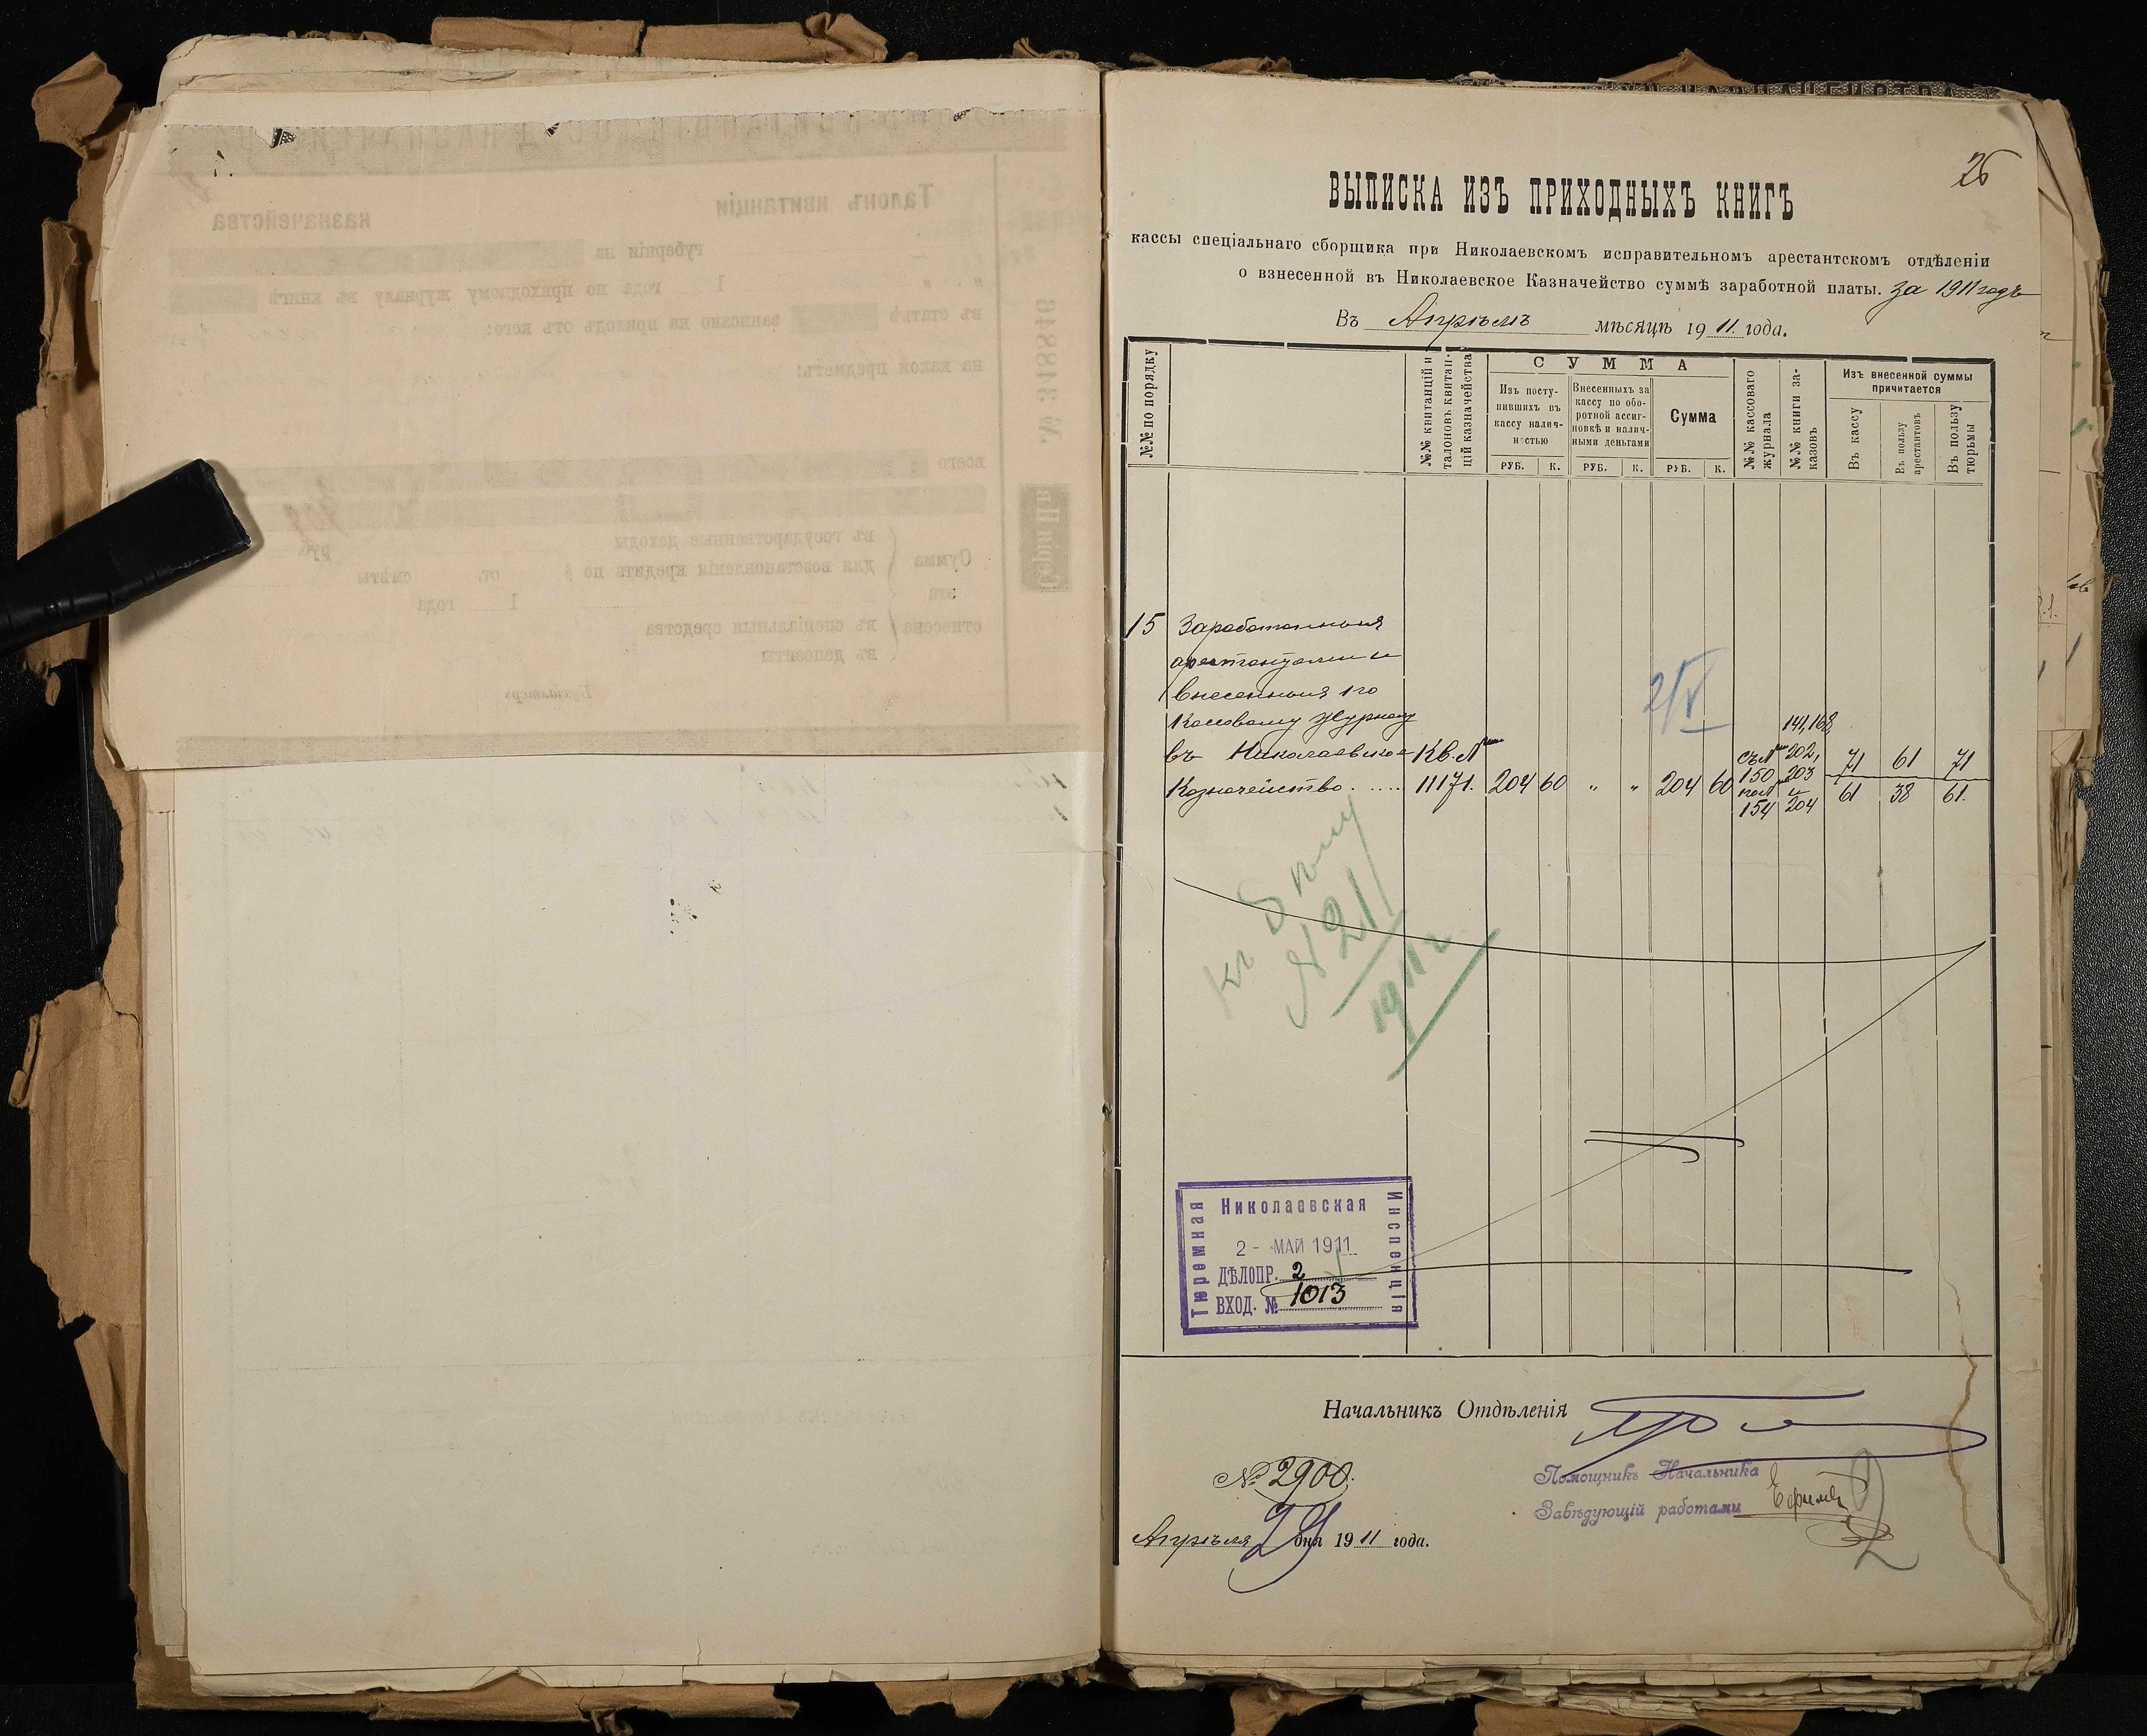 26
ВЫПИСКА ИЗЪ ПРИХОДНЫХЪ КНИГЪ
кассы спеціальнаго сборщика при Николаевскомъ исправительномъ арестантскомъ отдѣленіи
о взнесенной въ Николаевское Казначейство суммѣ заработной платы. За 1911 годъ
Въ Апрѣлѣ мѣсяцѣ 1911 года.
№№ по порядку
№№ квитанцій и талоновъ квитанцій казначейства
СУММА
Изъ посту-
пившихъ въ
кассу налич-
ностью
Внесенныхъ за
кассу по обо-
ротной ассиг-
новкѣ и налич-
ными деньгами
Сумма
РУБ. К. РУБ. К. РУБ. К.
№№ кассоваго журнала
№№ книги заказовъ
Изъ внесенной суммы
причитается
Въ кассу
Въ пользу арестантовъ
Въ пользу тюрьмы
2/V
15 Заработанныя
арестантами и
внесенныя по
Кассовому журналу
141, 168,
въ Николаевское Кв. № съ № 202, 71 61 71
Казначейство 11171. 204 60 „ „ 204 60 150 203 61 38 61.
по № и
154 204
Къ
№ 21
1911 г
Николаевская
Тюремная
Инспекція
2 - МАЙ 1911
ДѢЛОПР. 2
ВХОД. № 1013
Начальникъ Отдѣленія
№ 2900.
Помощникъ Начальника
Завѣдующій работами
Апрѣля 29 дня 1911 года.
Талонъ квитанціи
казначейства
губерніи на
1 года по приходному журналу въ книгѣ
въ статьѣ записано на приходъ отъ кого:
на какой предметъ:
№ 318846
всего
Серія II в
Сумма
эта
отнесена
въ государственные доходы
для возстановленія кредита по ст. смѣты
1 года
въ спеціальныя средства
въ депозиты
руб.
Бухгалтеръ